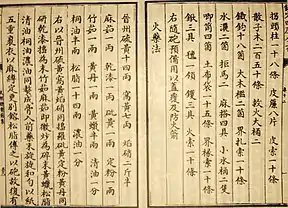 拐頭柱一十八條 皮簾八片 皮索一十條
散子木二百五十條 救火大桶二
鐵鈎十八箇 大木檻二箇 界扎索一十條
水濃二箇 拒馬二 麻搭四具 小水桶二隻
唧筒四箇 土布袋一十五條 界椽索一十條
鍬三具 三領 钁三具 火索一十條
右隨砲預備用以蓋覆及防火箭
火藥法
晉州硫黄十四兩 窩黄七兩 焰硝二斤半
麻茹一兩 乾漆一兩 砒黄一兩 定粉一兩
竹茹一兩 黄丹一兩 黄蠟半兩 清油一分
桐油半兩 松脂一十四兩 濃油一分
右以晉州硫黄窩黄焰硝同搗羅砒黄定粉黄丹同
研乾漆搗為末竹茹麻茹即微炒為碎末黄蠟松脂
清油桐油濃油同熬成膏入前藥末旋旋和勻以紙
五重裹衣以麻縛定更別鎔松脂傅之以砲放復有